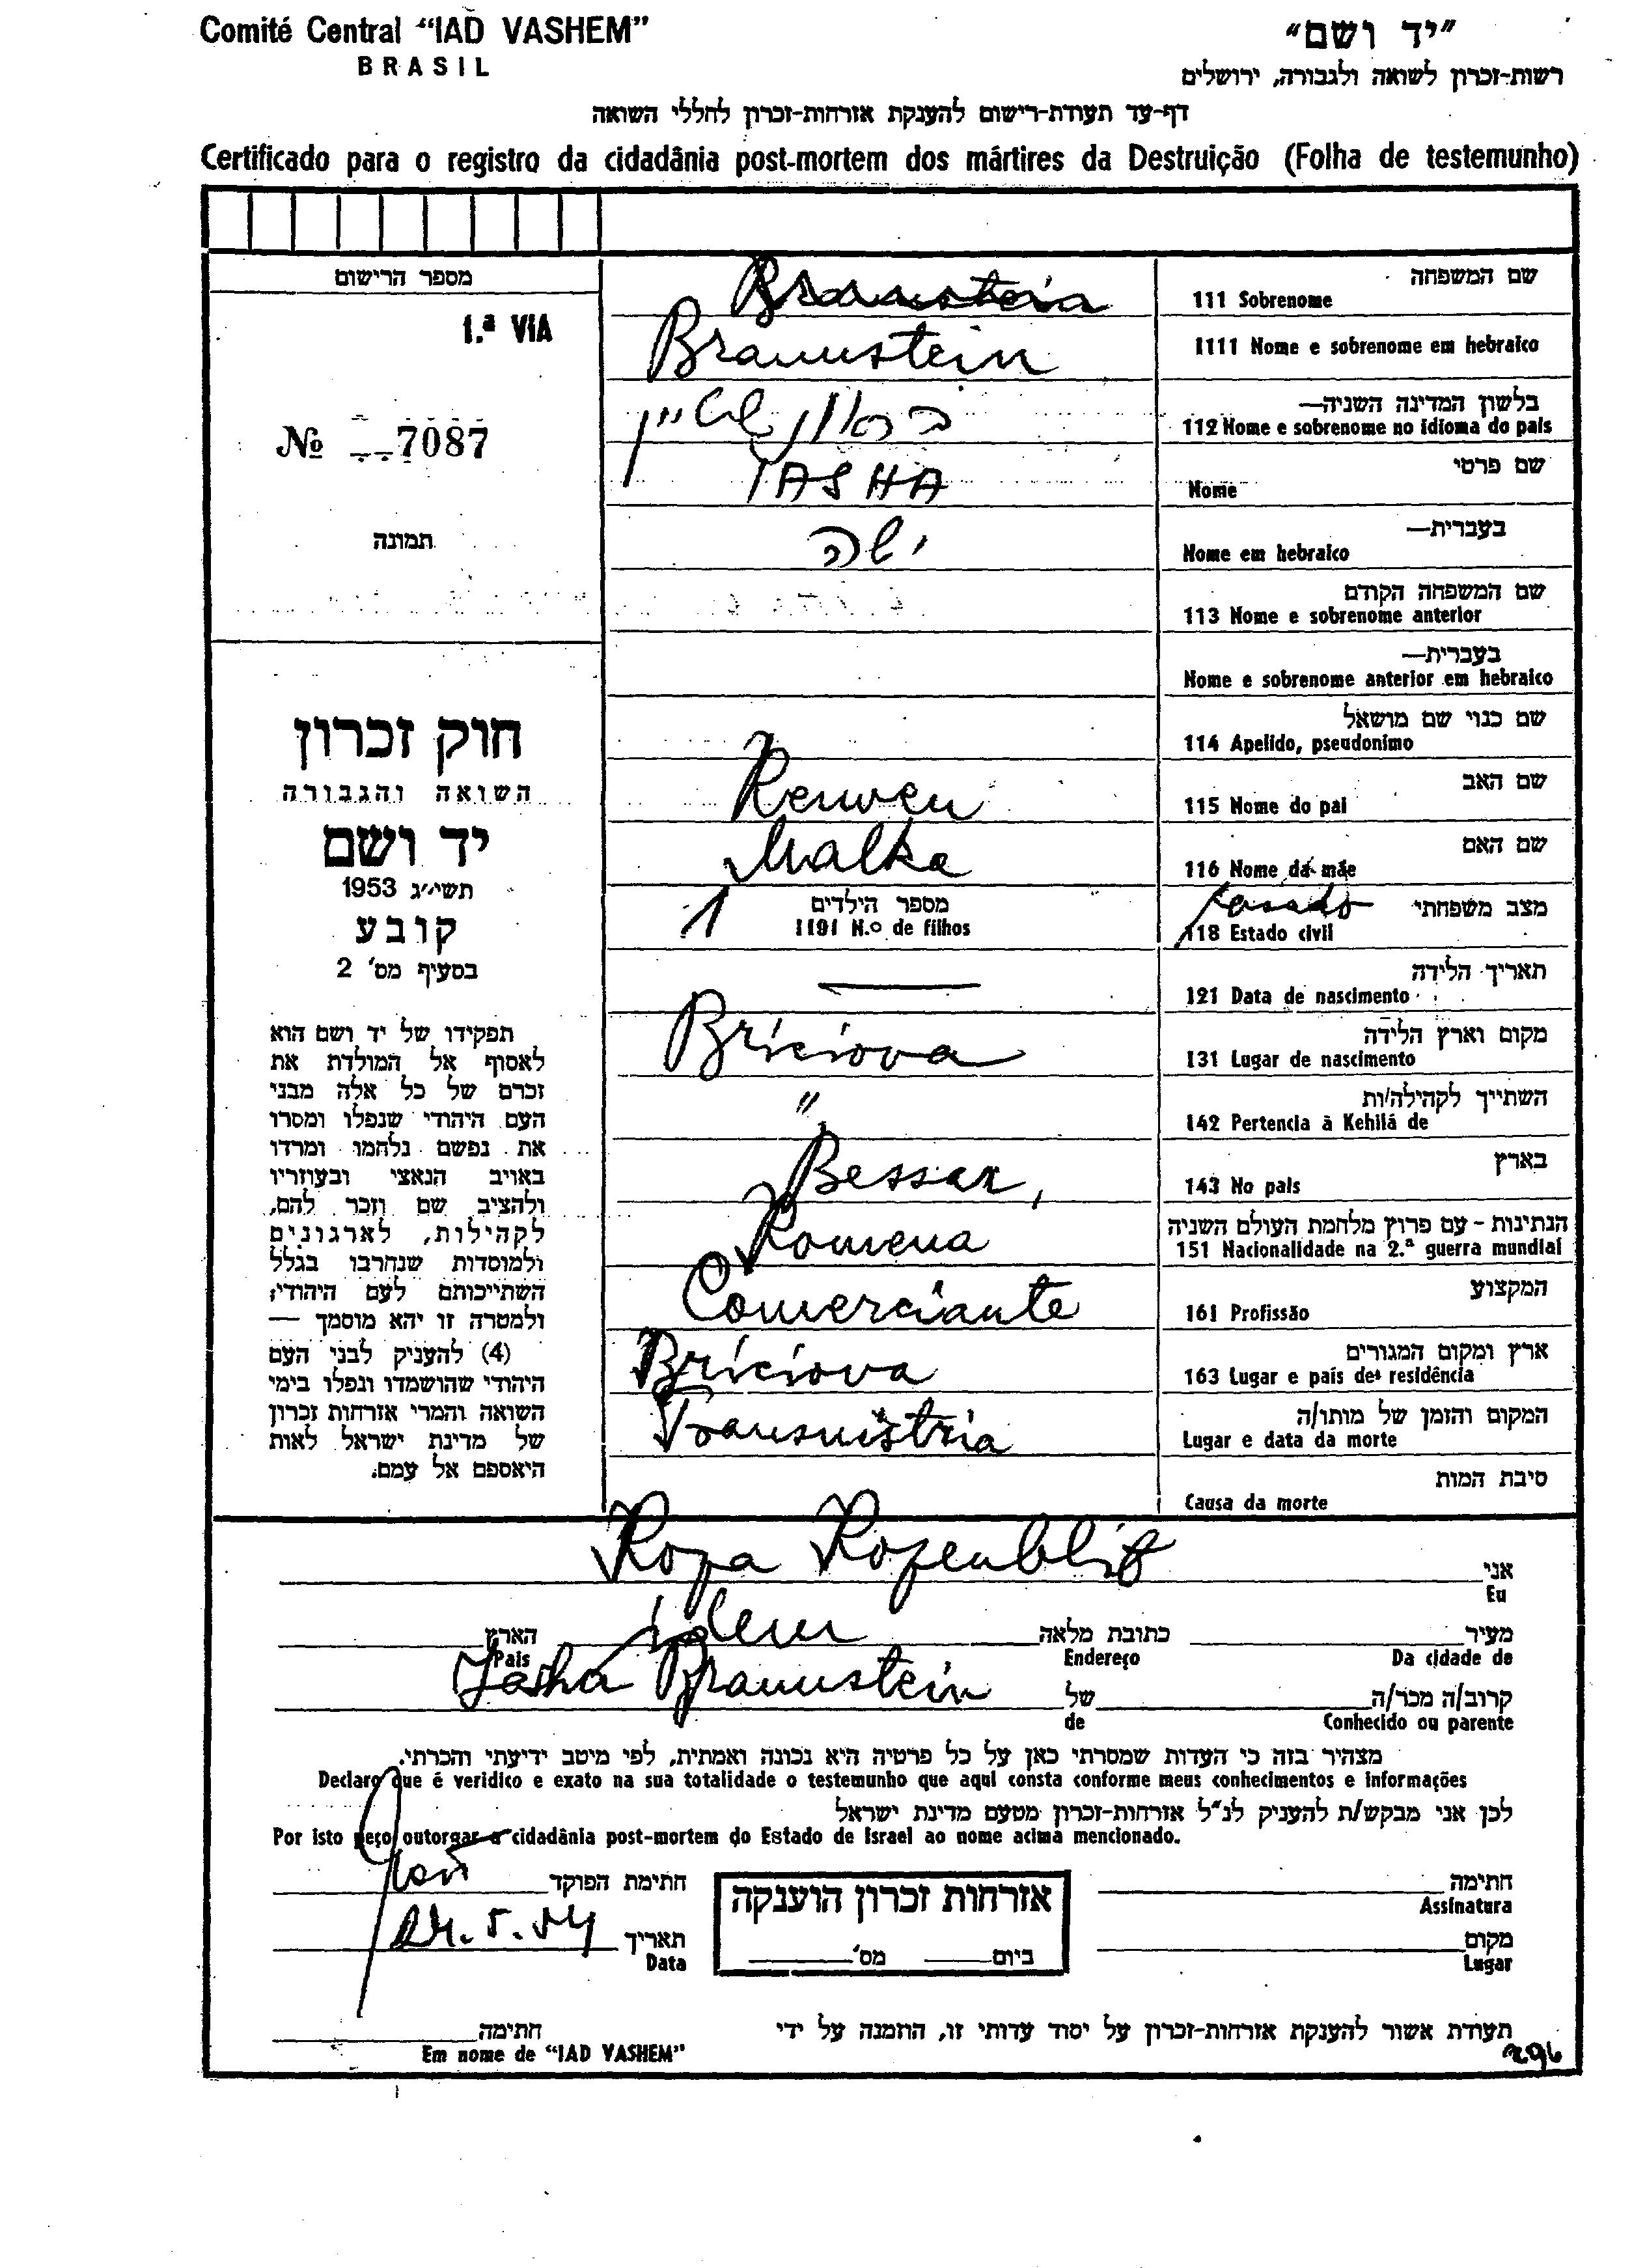 Comité Central "IAD VASHEM"
BRASIL
"יד ושם"
רשות-זכרון לשואה ולגבורה, ירושלים
דף-עד תעודת-רישום להענקת אזרחות-זכרון לחללי השואה
Certificado para o registro da cidadânia post-mortem dos mártires da Destruição (Folha de testemunho)
מספר הרישום
1.ª VIA
№ 7087
תמונה
חוק זכרון
השואה והגבורה
יד ושם
תשי״ג 1953
קובע
בסעיף מס' 2
תפקידו של יד ושם הוא
לאסוף אל המולדת את
זכרם של כל אלה מבני
העם היהודי שנפלו ומסרו
את נפשם נלחמו ומרדו
באויב הנאצי ובעוזריו
ולהציב שם וזכר להם,
לקהילות, לארגונים
ולמוסדות שנחרבו בגלל
השתייכותם לעם היהודי;
ולמטרה זו יהא מוסמך —
(4) להעניק לבני העם
היהודי שהושמדו ונפלו בימי
השואה והמרי אזרחות זכרון
של מדינת ישראל לאות
היאספם אל עמם.
שם המשפחה
111 Sobrenome Braunstein
1111 Nome e sobrenome em hebraico Braunstein
בלשון המדינה השניה—
112 Nome e sobrenome no idioma do país בראונשטיין
שם פרטי
Nome IASHA
בעברית—
Nome em hebraico ישה
שם המשפחה הקודם
113 Nome e sobrenome anterior
בעברית—
Nome e sobrenome anterior em hebraico
שם כנוי שם מושאל
114 Apelido, pseudonimo
שם האב
115 Nome do pai Reuwen
שם האם
116 Nome da mãe Malka
מצב משפחתי casado
118 Estado civil
מספר הילדים 1
1191 N.º de filhos
תאריך הלידה
121 Data de nascimento —
מקום וארץ הלידה
131 Lugar de nascimento Briciova
השתייך לקהילה/ות
142 Pertencia à Kehilá de "
בארץ
143 No país Bessar,
הנתינות - עם פרוץ מלחמת העולם השניה
151 Nacionalidade na 2.ª guerra mundial Romena
המקצוע
161 Profissão Comerciante
ארץ ומקום המגורים
163 Lugar e país de residência Briciova
המקום והזמן של מותו/ה
Lugar e data da morte Transnistria
סיבת המות
Causa da morte
אני Roza Rozenblit
Eu
מעיר כתובת מלאה Idem הארץ
Da cidade de Endereço Pais
קרוב/ה מכר/ה של Iasha Braunstein
Conhecido ou parente de
מצהיר בזה כי העדות שמסרתי כאן על כל פרטיה היא נכונה ואמתית, לפי מיטב ידיעתי והכרתי.
Declaro que é verídico e exato na sua totalidade o testemunho que aqui consta conforme meus conhecimentos e informações
לכן אני מבקש/ת להעניק לנ"ל אזרחות-זכרון מטעם מדינת ישראל
Por isto peço outorgar a cidadânia post-mortem do Estado de Israel ao nome acima mencionado.
חתימה
Assinatura
חתימת הפוקד
מקום
Lugar
אזרחות זכרון הוענקה
ביום מס'
תאריך
Data
תעודת אשור להענקת אזרחות-זכרון על יסוד עדותי זו, הוזמנה על ידי
חתימה
Em nome de "IAD VASHEM"
296